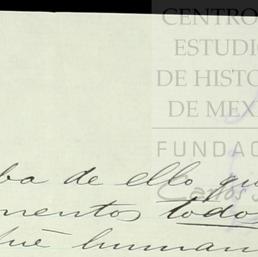 CENTRO
ESTUDIO
DE HISTO
DE MEX
FUNDAC
Carlos S
ba de ello qu
mentos todo
hué human